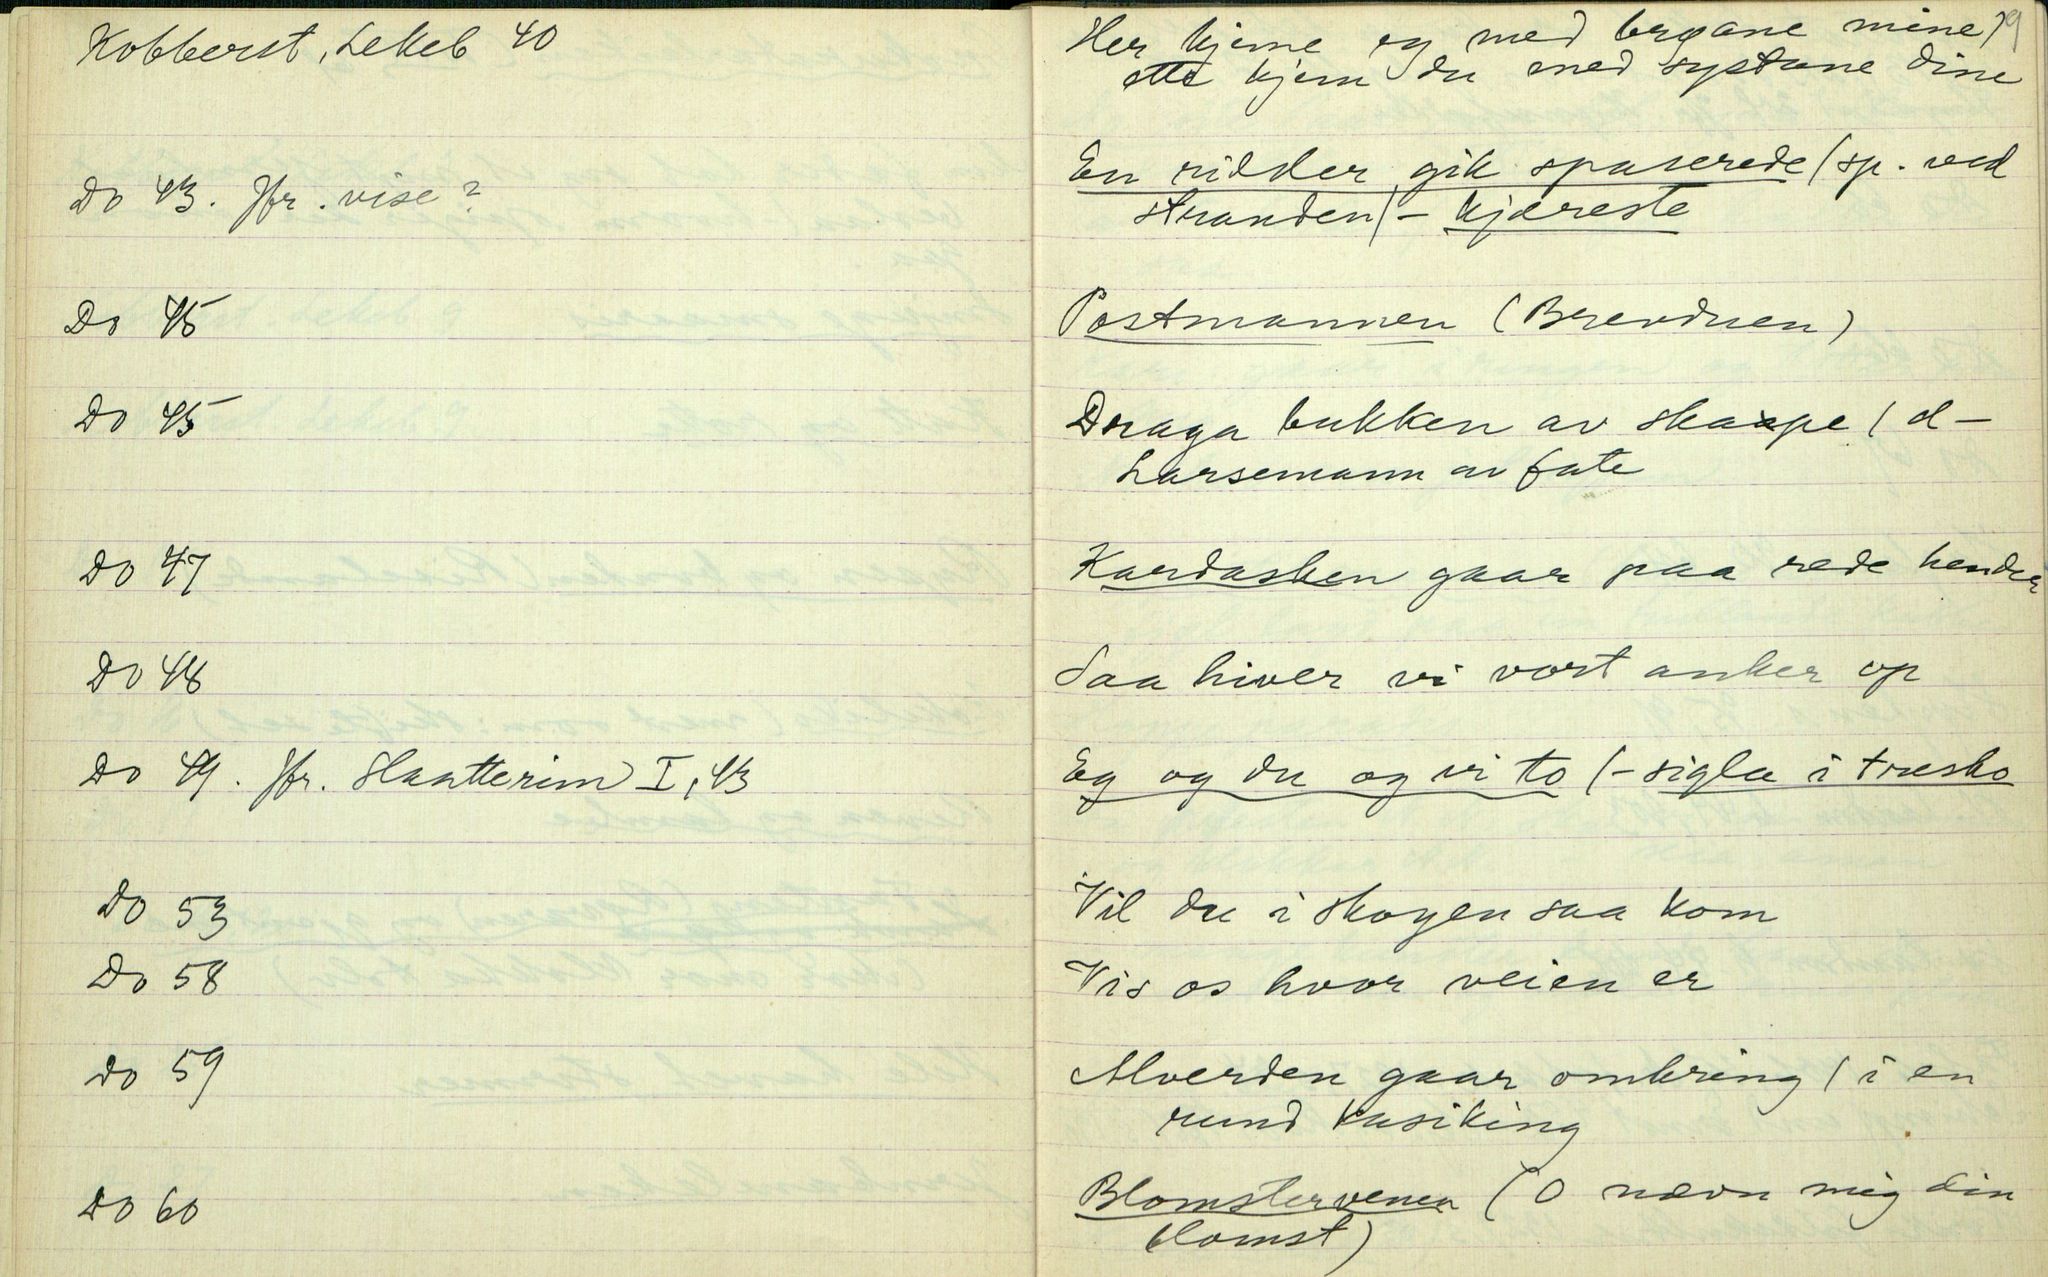 Kobberst, Lekeb 40
Do 43. Jfr. vise?
Do 45
Do 45
Do 47
Do 48
Do 49. Jfr. Slaatterim I, 43
Do 53
Do 58
Do 59
Do 60
9
Her kjeme eg med brøane mine /
ette kjem du med systane dine
En ridder gik spaserede (sp. ved
stranden) - kjæreste
Postmannen (Brevduen)
Draga bukken av skaape / d -
Larsemann av fate
Kardasken gaar paa rede hender
Saa hiver vi vort anker op
Eg og du og vi to (- sigla i træsko
Vil du i skogen saa kom
Vis os hvor veien er
Alverden gaar omkring / i en
rund kusiking
Blomstervenen (O nævn mig din
blomst)